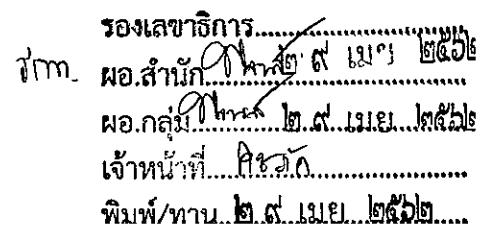 รองเลขาธิการ
รทท. ผอ.สำนัก ๒๙ เมย ๒๕๖๒
ผอ.กลุ่ม ๒๙ เมย ๒๕๖๒
เจ้าหน้าที่
พิมพ์/ทาน ๒๙ เมย ๒๕๖๒